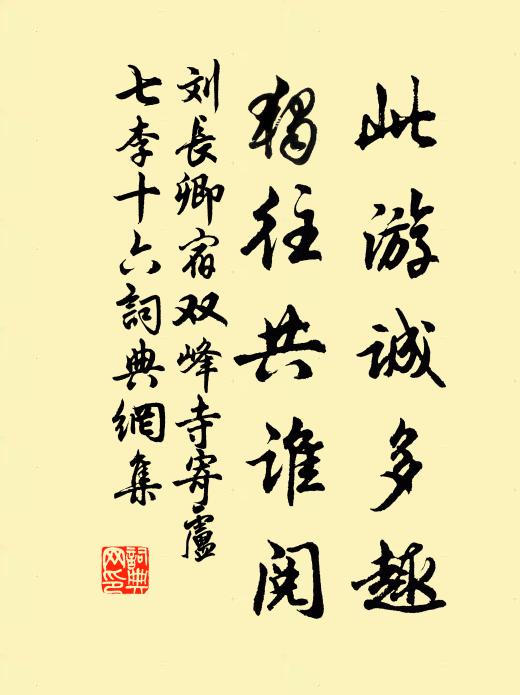 此游诚多趣
独往共谁阅
刘長卿宿双峰寺寄盧
七李十六詞典網集
詞典網印